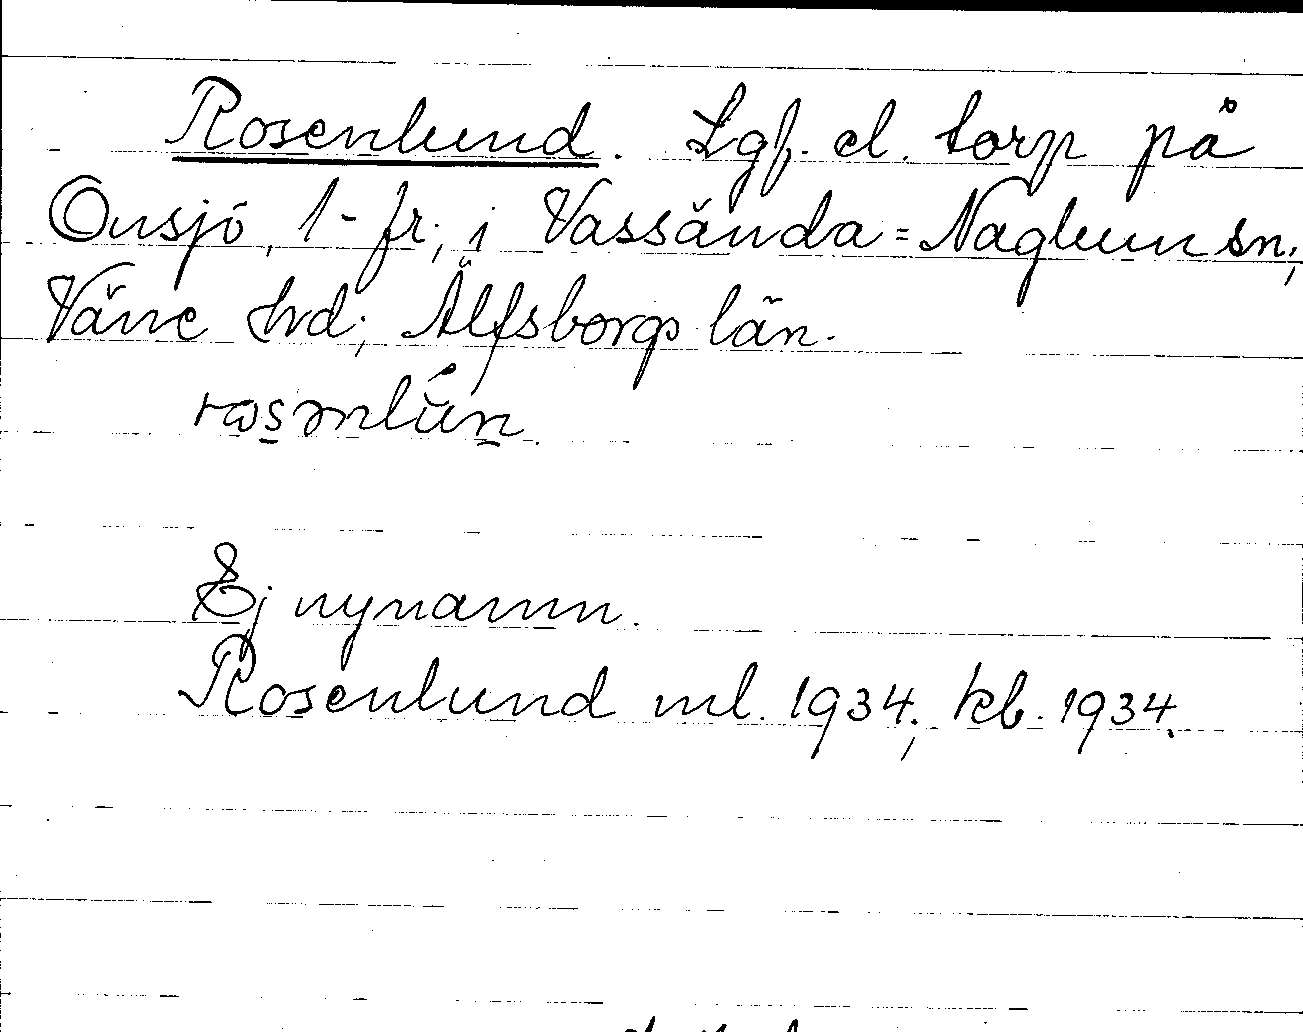 Rosenlund. Lgf. el. torp på
Onsjö, 1-fr., i Vassända=Naglum sn;
Väne hd; Älfsborgs län.
rosənlún.
Ej nynamn.
Rosenlund ml. 1934; kb. 1934.